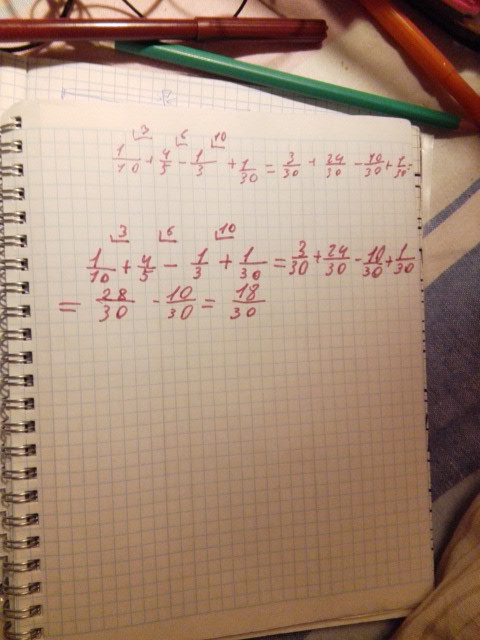 3 6 10
1/10 + 4/5 - 1/3 + 1/30 = 3/30 + 24/30 - 10/30 + 1/30 =
3 6 10
1/10 + 4/5 - 1/3 + 1/30 = 3/30 + 24/30 - 10/30 + 1/30
= 28/30 - 10/30 = 18/30